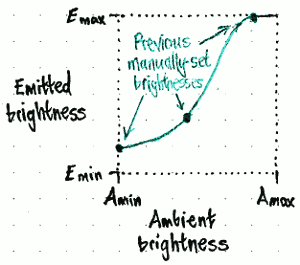 Emax
Previous
manually-set
brightnesses
Emitted
brightness
Emin
Amin
Amax
Ambient
brightness